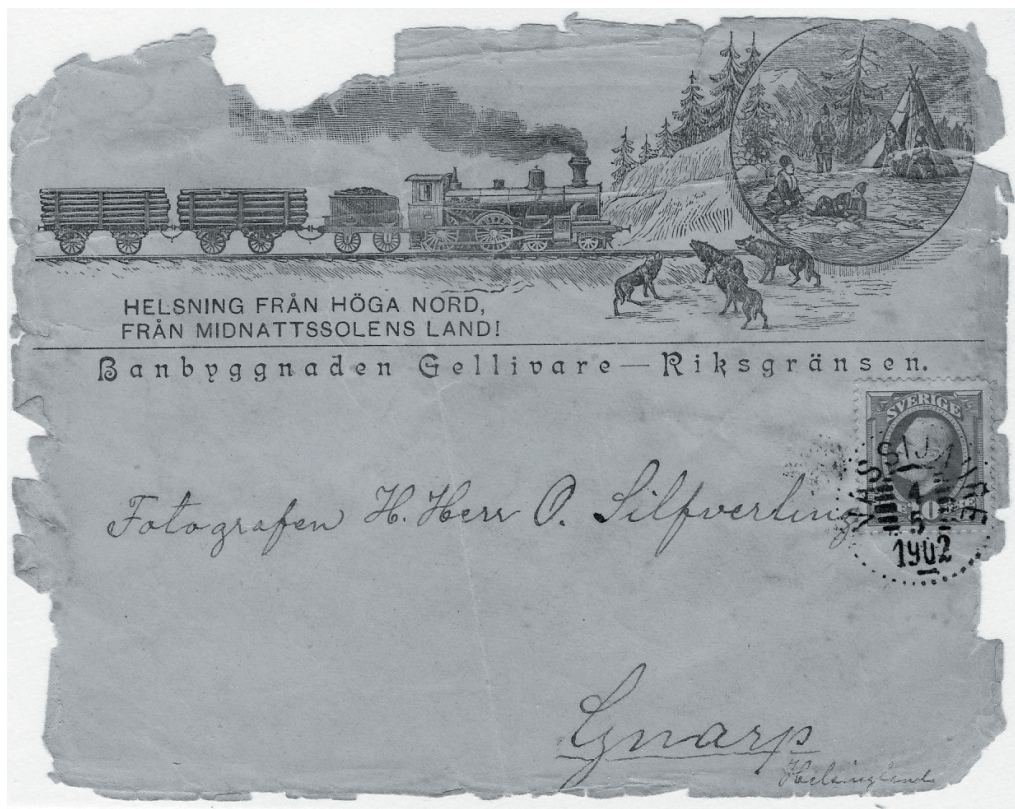 HELSNING FRÅN HÖGA NORD,
FRÅN MIDNATTSSOLENS LAND!
Banbyggnaden Gellivare — Riksgränsen.
SVERIGE
10
VASSIJAURE
4
5
1902
Fotografen H. Herr O. Silfverling
Gnarp
Helsingland